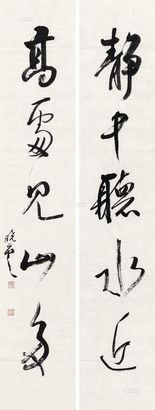 靜中聽水近
高處見山多
曉雲